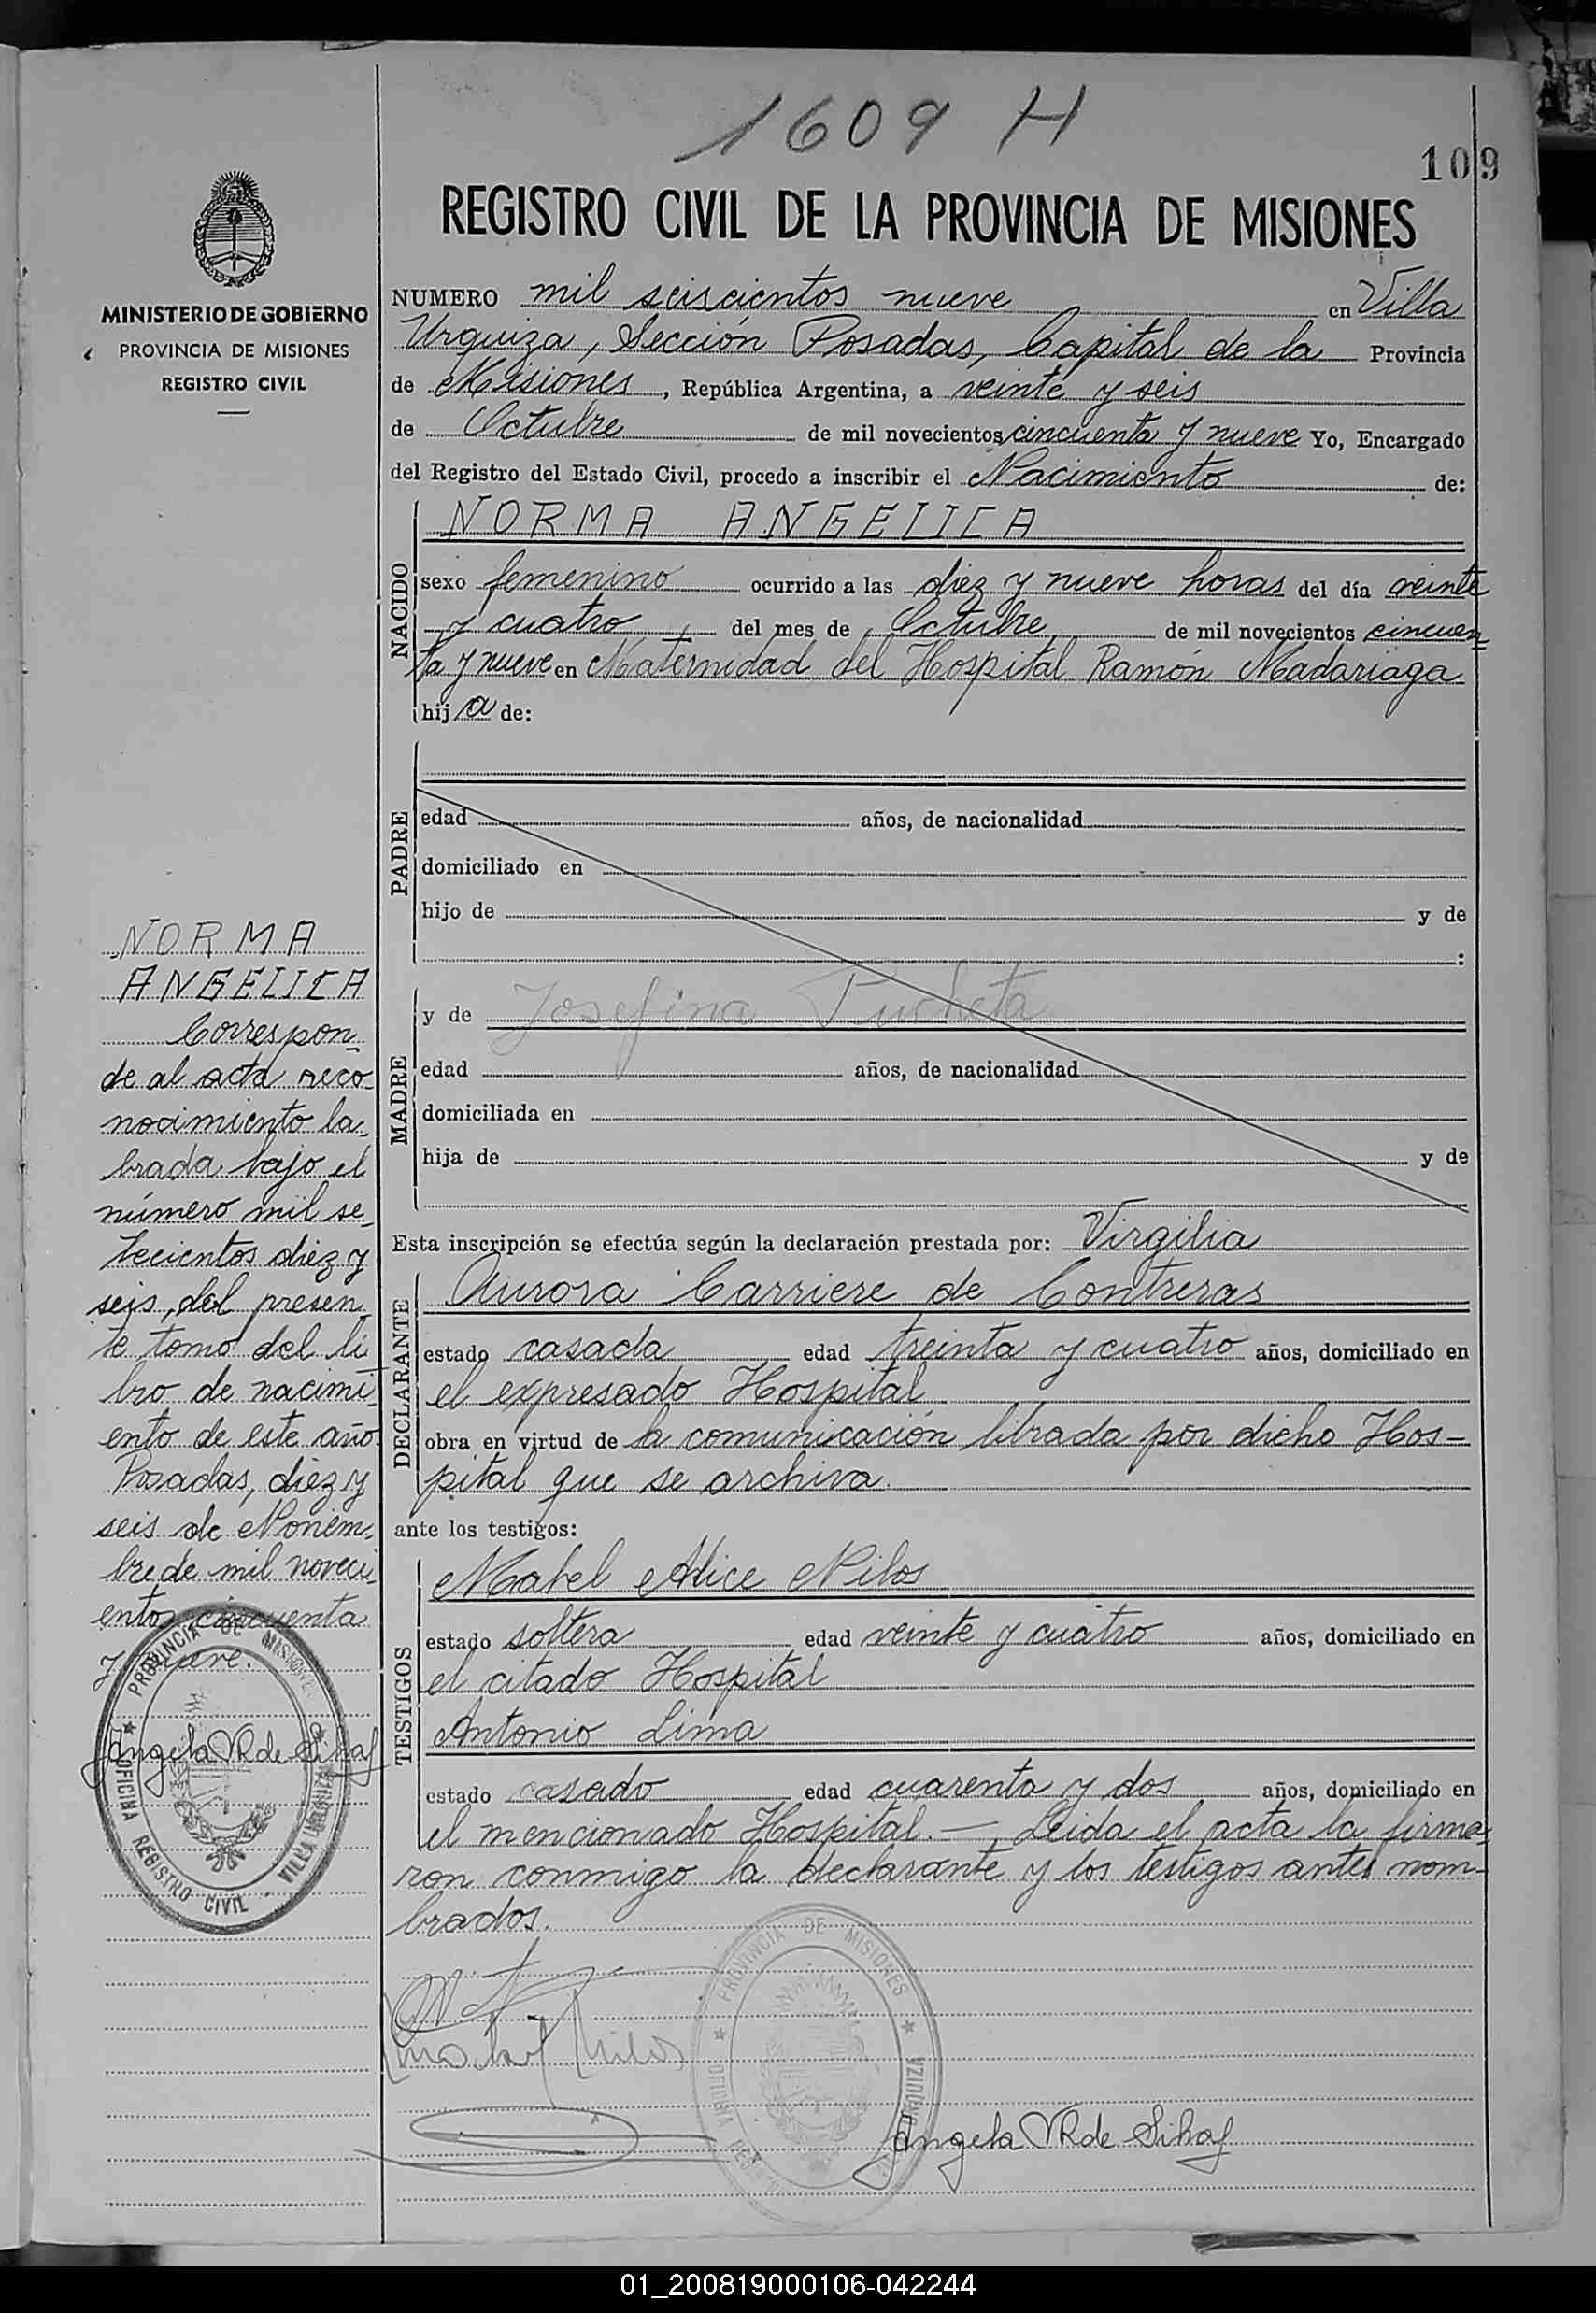 1609 H
109
REGISTRO CIVIL DE LA PROVINCIA DE MISIONES
MINISTERIO DE GOBIERNO
PROVINCIA DE MISIONES
REGISTRO CIVIL
NUMERO mil seiscientos nueve en Villa
Urquiza, Sección Posadas, Capital de la Provincia
de Misiones, República Argentina, a veinte y seis
de Octubre de mil novecientos cincuenta y nueve Yo, Encargado
del Registro del Estado Civil, procedo a inscribir el Nacimiento de:
NACIDO
NORMA ANGELICA
sexo femenino ocurrido a las diez y nueve horas del día veinte
y cuatro del mes de Octubre de mil novecientos cincuen
ta y nueve en Maternidad del Hospital Ramón Madariaga
hij a de:
PADRE
edad años, de nacionalidad
domiciliado en
hijo de y de
:
MADRE
y de Josefina Pucheta
edad años, de nacionalidad
domiciliada en
hija de y de
Esta inscripción se efectúa según la declaración prestada por: Virgilia
DECLARANTE
Aurora Carriere de Contreras
estado casada edad treinta y cuatro años, domiciliado en
el expresado Hospital
obra en virtud de la comunicación librada por dicho Hos-
pital que se archiva.
ante los testigos:
TESTIGOS
Mabel Alice Nilos
estado soltera edad veinte y cuatro años, domiciliado en
el citado Hospital
Antonio Lima
estado casado edad cuarenta y dos años, domiciliado en
el mencionado Hospital.—, Leida el acta la firma
ron conmigo la declarante y los testigos antes nom-
brados.
Angela VR de Sihaf
PROVINCIA DE MISIONES
NORMA
ANGELICA
Correspon
de al acta reco
nocimiento la
brada bajo el
número mil se
tecientos diez y
seis, del presen
te tomo del li
bro de nacimi
ento de este año
Posadas, diez y
seis de Noviem
bre de mil noveci
entos cincuenta
y nueve.
Angela VR de Sihaf
PROVINCIA DE MISIONES
OFICINA REGISTRO CIVIL - VILLA URQUIZA
01_200819000106-042244